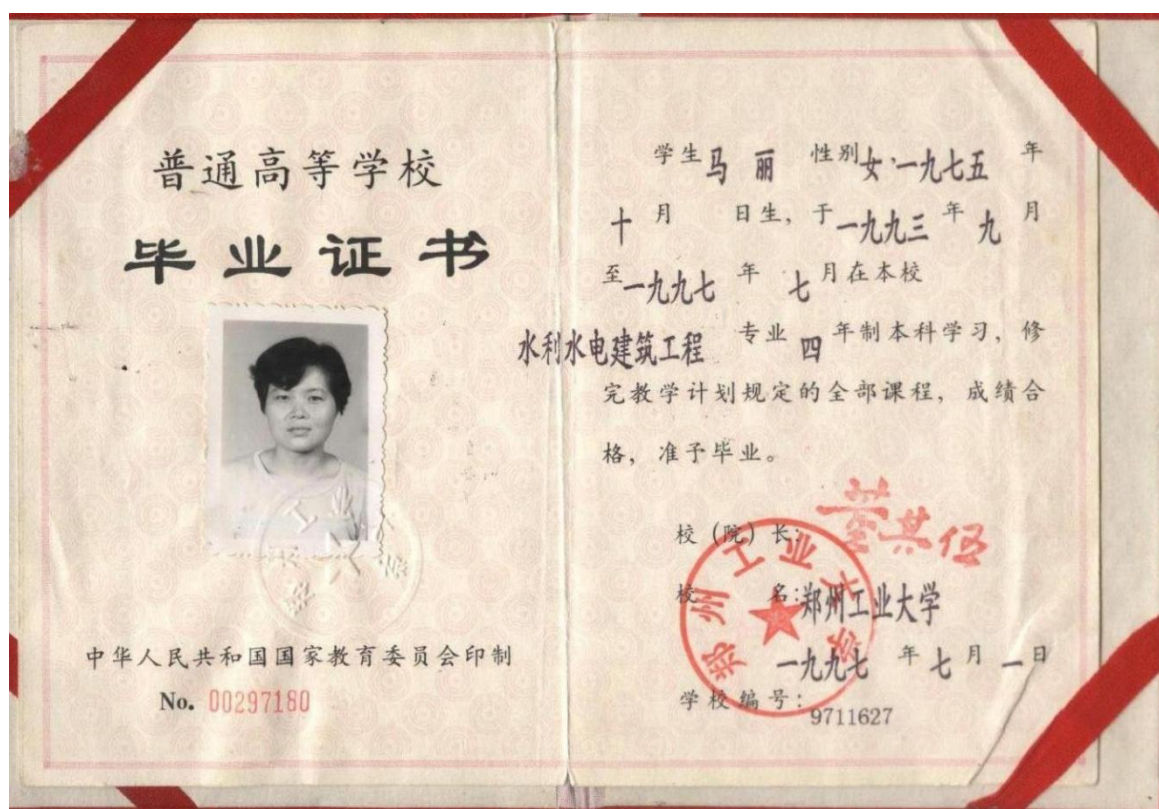 普通高等学校
毕业证书
中华人民共和国国家教育委员会印制
No. 00297180
学生马丽 性别女,一九七五年
十月 日生,于一九九三年九月
至一九九七年七月在本校
水利水电建筑工程专业四年制本科学习,修
完教学计划规定的全部课程,成绩合
格,准予毕业。
校(院)长:
校名:郑州工业大学
一九九七年七月一日
学校编号:9711627
郑州工业大学